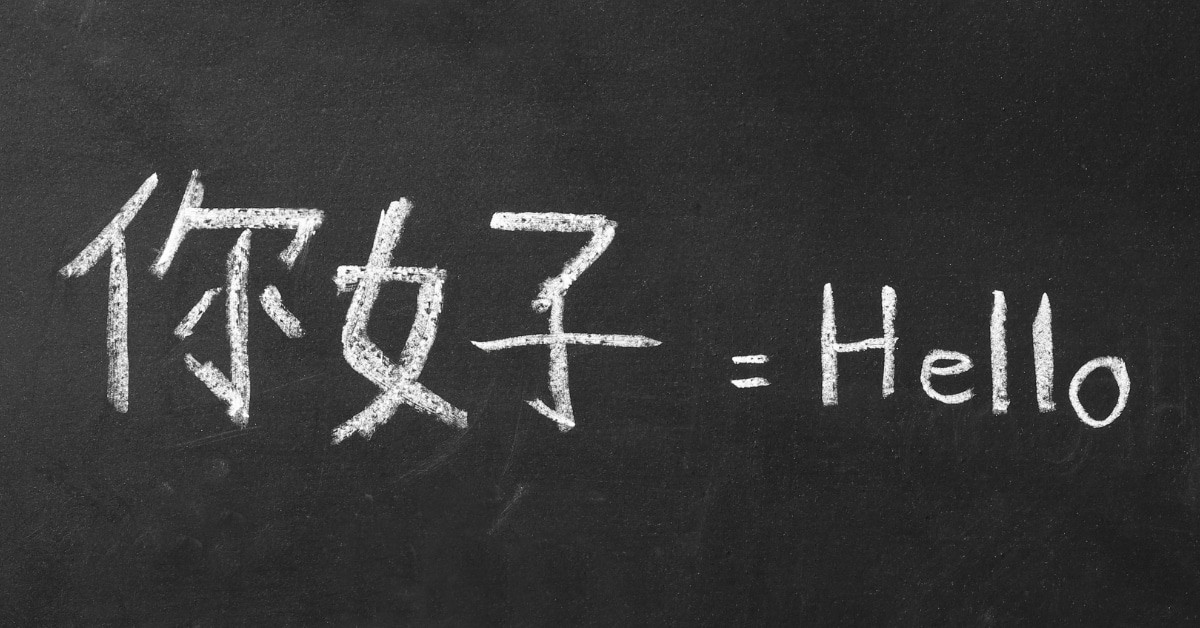 你好 = Hello